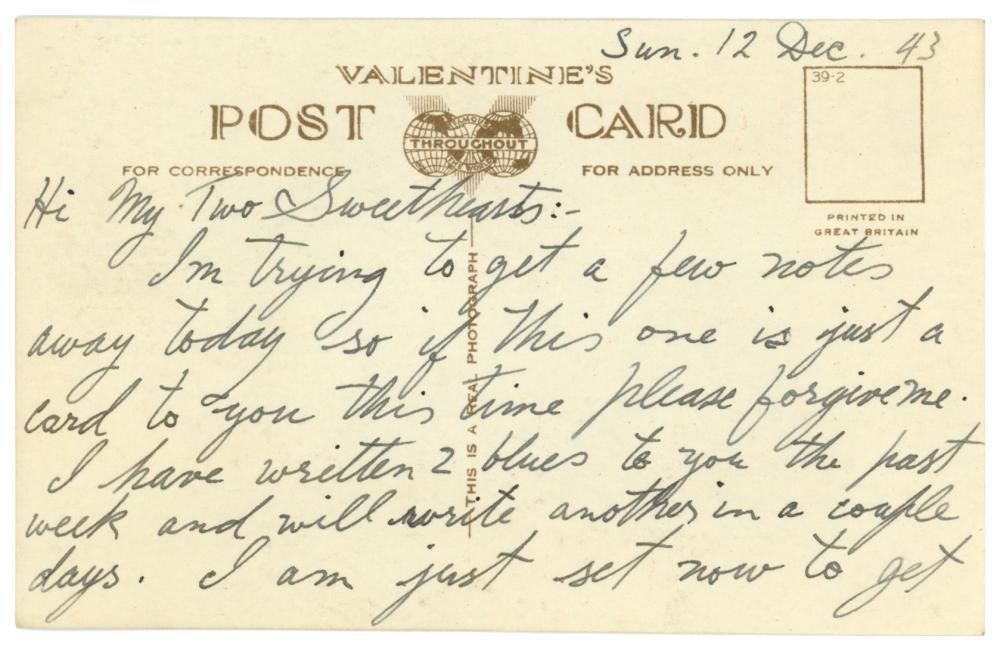 Sun. 12 Dec. 43
VALENTINE'S
39-2
POST CARD
FAMOUS
THROUGHOUT
THE WORLD
FOR CORRESPONDENCE
FOR ADDRESS ONLY
PRINTED IN
GREAT BRITAIN
THIS IS A REAL PHOTOGRAPH
Hi My Two Sweethearts:-
Im trying to get a few notes
away today so if this one is just a
card to you this time please forgive me.
I have written 2 blues to you the past
week and will write another in a couple
days. I am just set now to get